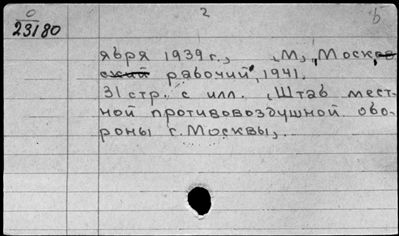 0
23180
2
b
ября 1939 г., „М„ „Москов-
ский рабочий", 1941.
31 стр. с илл. „Штаб мест-
ной противовоздушной обо-
роны г. Москвы„.